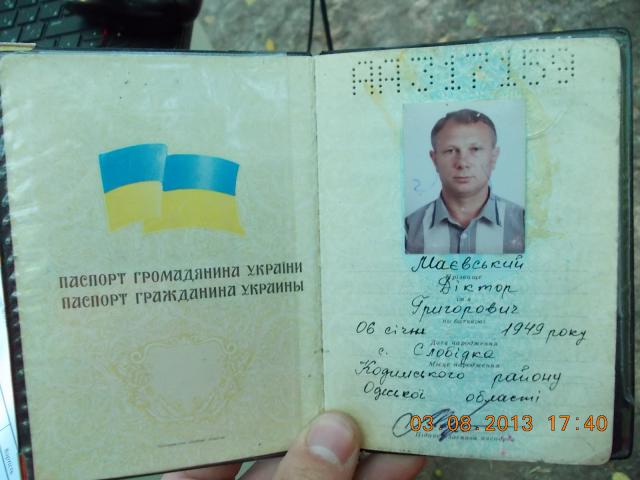 ПАСПОРТ ГРОМАДЯНИНА УКРАЇНИ
ПАСПОРТ ГРАЖДАНИНА УКРАИНЫ
АА317159
Маєвський
Прізвище
Віктор
Ім'я
Григорович
По батькові
06 січня 1949 року
Дата народження
с. Слобідка
Місце народження
Кодимського району
Одеської області
03.08.2013 17:40
Підпис власника паспорта